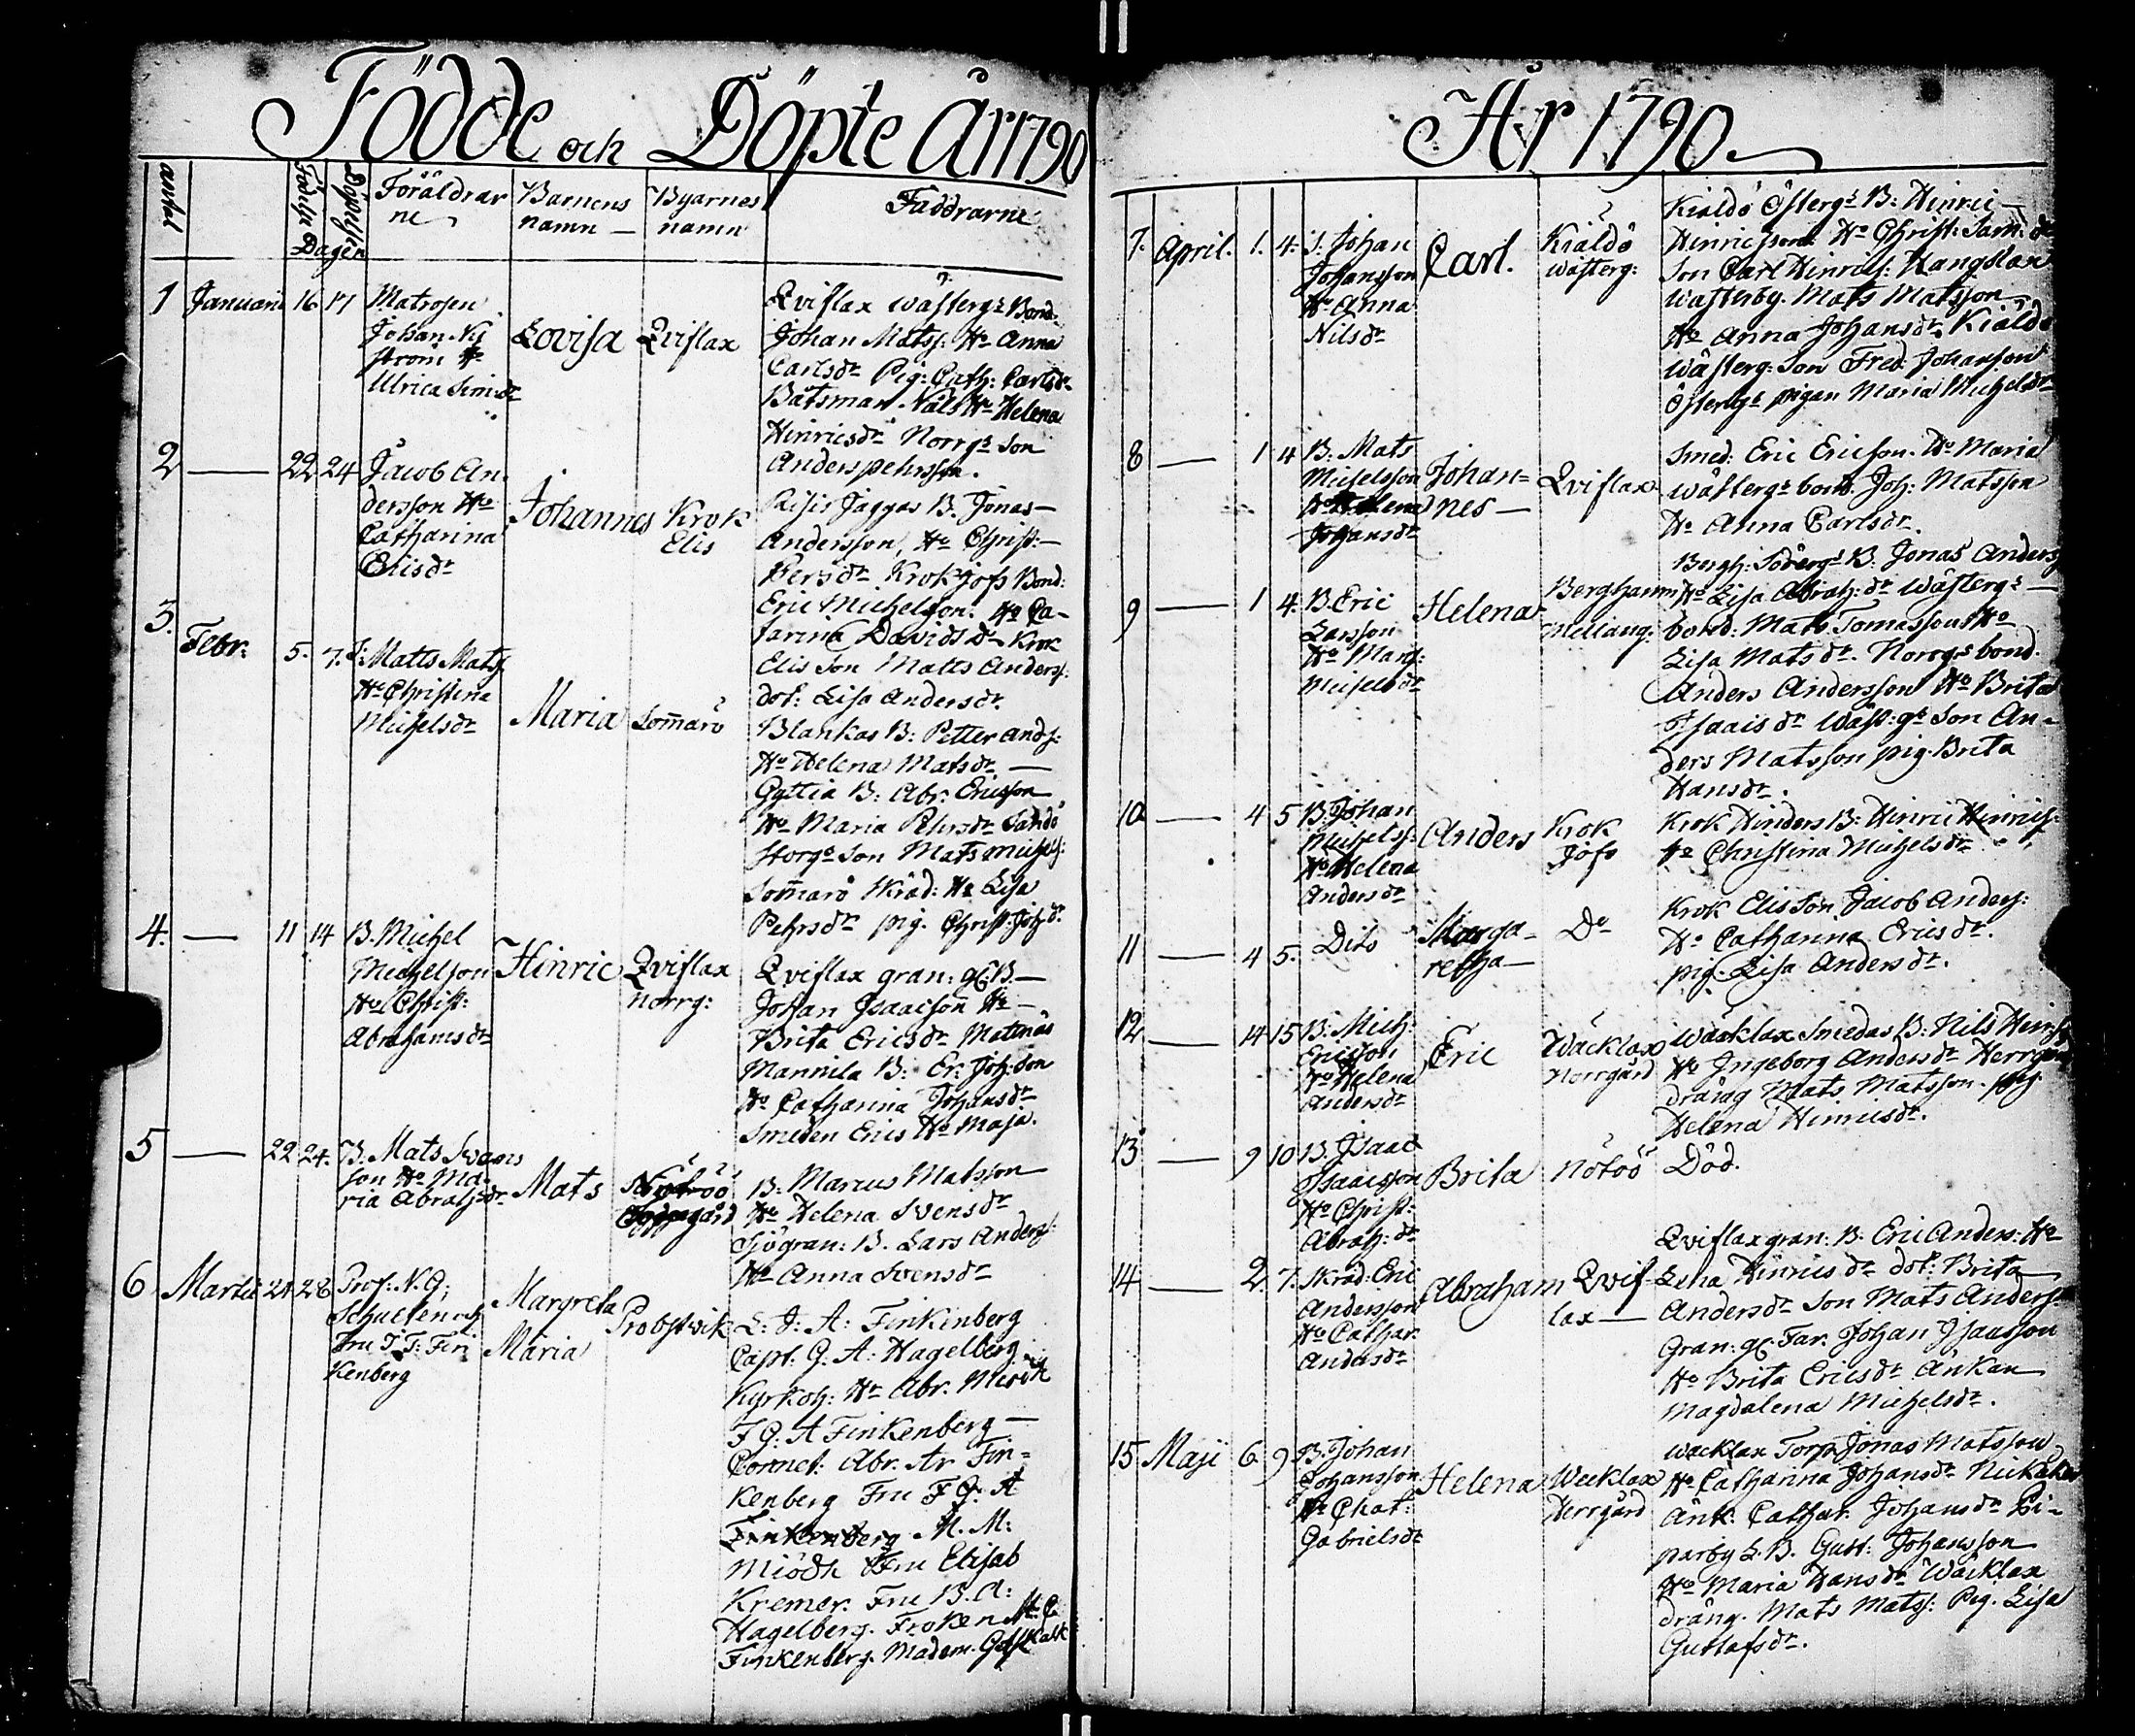 Födde och Döpte År 1790
antal
Födelse
Döpelse
Dagen
Föräldrar
ne
Barnens
namn
Byarnes
namn
Faddrarne
1 Januarii 16 17
Matrosen
Johan Ny
ström Ho
Ulrica Simsdr
Lovisa
Qviflax
Qviflax Wästergs Bond:
Johan Matss: Ho Anna
Carlsdr Pig: Cath: Carlsdr
Båtsman Näls Ho Helena
Hinricsdr Norrgs Son
Anders pehrsson.
2 — 22 24
Jacob An
dersson Ho
Catharina
Elisdr
Johannes
Krok
Elis
Jaggas B. Jonas
Andersson, Ho Christ:
Persdr Krok Jofs Bond:
Eric Michelson: Ho Ca-
tarina Davidsdr Krok
Elis Son Matts Anderss:
dot: Lisa Andersdr
3. Febr: 5. 7.
S: Matts Matss
Ho Christina
Michelsdr
Maria
Somarö
Blankas B: Petter Ands:
Ho Helena Matsdr
Gyttia B: Abr. Ericsson
Ho Maria Pehrsdr Sandö
Storgs Son Mats Michels:
Somarö Skräd: Ho Lisa
Pehrsdr pig. Christ: Joh:dr
4. — 11 14
B. Michel
Michelson
Ho Christ:
Abrahamsdr
Hinric
Qviflax
norrg:
Qviflax gran: gl: B.
Johan Isaacson Ho
Brita Ericsdr Matnäs
Mannila B: Er: Joh:son
Ho Catharina Johansdr
Smeden Erics Ho Maja.
5 — 22 24.
B. Mats Svens
son Ho Ma
ria Abrahsdr
Mats
B. Marcus Matsson
Ho Helena Svensdr
Sjögran: B. Lars Anders:
Ho Anna Svensdr
6 Martii 21 28
Prof: N. G:
Schulten och
Fru J: F: Fin
kenberg
Margreta
Maria
Probstvik
L: J: A: Finkenberg
Capt: G: A: Hagelberg
Kyrkoh: Hr Abr.
F G: A Finkenberg
Cornet: Abr. Ar Fin-
kenberg Fru F G: A
Finkenberg M. M:
Miödh Fru Elisab
Kremer. Fru B. A:
Hagelberg. Fröken M: C
Finkenberg. Madem.
År 1790
7. April. 1. 4.
S. Johan
Johansson
Ho Anna
Nilsdr
Carl.
Kiäldö
wästerg:
Kialdö Östergs B: Hinric
Hinricsson Ho Christ: Sam:dr
Son Carl Hinrics: Hangslax
Wästerby. Mats Matsson
Ho Anna Johansdr Kiäldö
Wästerg: Son Fred: Johanson
Östergs pigan Maria Michelsdr
8 — 1 4
B. Mats
Michelsson
Ho Helena
Johansdr
Johan=
nes
Qviflax
Smed: Eric Ericson. Ho Maria
Wästergs bond. Joh: Matsson
Ho Anna Carlsdr.
9 — 1 4.
B. Eric
Larsson
Ho Marg:
Michelsdr
Helena
Berghamn
Mellang:
Bergh: Södergs B: Jonas Anders
Ho Lisa Abrah:dr Wästergs
bond: Mats Tomasson Ho
Lisa Matsdr. Norrgs bond.
Anders Andersson Ho Brita
Isaacsdr Wäst:gs Son An-
ders Matsson pig. Brita
Hansdr.
10 — 4 5
B. Johan
Michelss:
Ho Helena
Andersdr
Anders
Krok
Jofs
Krok Hinders B: Hinric Hinrics:
Ho Christina Michelsdr
11 — 4 5.
Dito
Marga-
retha
Do
Krok Elis Son Jacob Anders:
Ho Catharina Ericsdr.
pig. Lisa Andersdr.
12 — 14 15
B: Mich:
Ericsson
Ho Helena
Andersdr
Eric
Wäcklax
Norrgård
Wäcklax Smedas B: Nils Hinrss
Ho Ingeborg Andersdr Herrgård
dräng Mats Matsson. pig.
Helena Hinricsdr.
13 — 9 10
B. Isaac
Isaacsson
Ho Christ:
Abrah:dr
Brita
Nötöö
Död.
14 — 2. 7.
Skräd: Eric
Andersson
Ho Cathar.
Andersdr
Abraham
Qvif-
lax
Qviflax gran: B: Eric Anders: Ho
Lena Hinricsdr dot: Brita
Andersdr Son Mats Anders:
Gran: gl: Far. Johan Isaacsson
Ho Brita Ericsdr Änkan
Magdalena Michelsdr.
15 Maji 6 9
B. Johan
Johansson
Ho Chat:
Gabrielsdr
Helena
Wecklax
Herrgård
Wäcklax Torp: Jonas Matsson
Ho Catharina Johansdr
Änk. Cathar. Johansdr Pi-
parby L. B. Gust: Johansson
Ho Maria Hansdr Wäcklax
dräng. Mats Matss: Pig. Lisa
Gustafsdr.